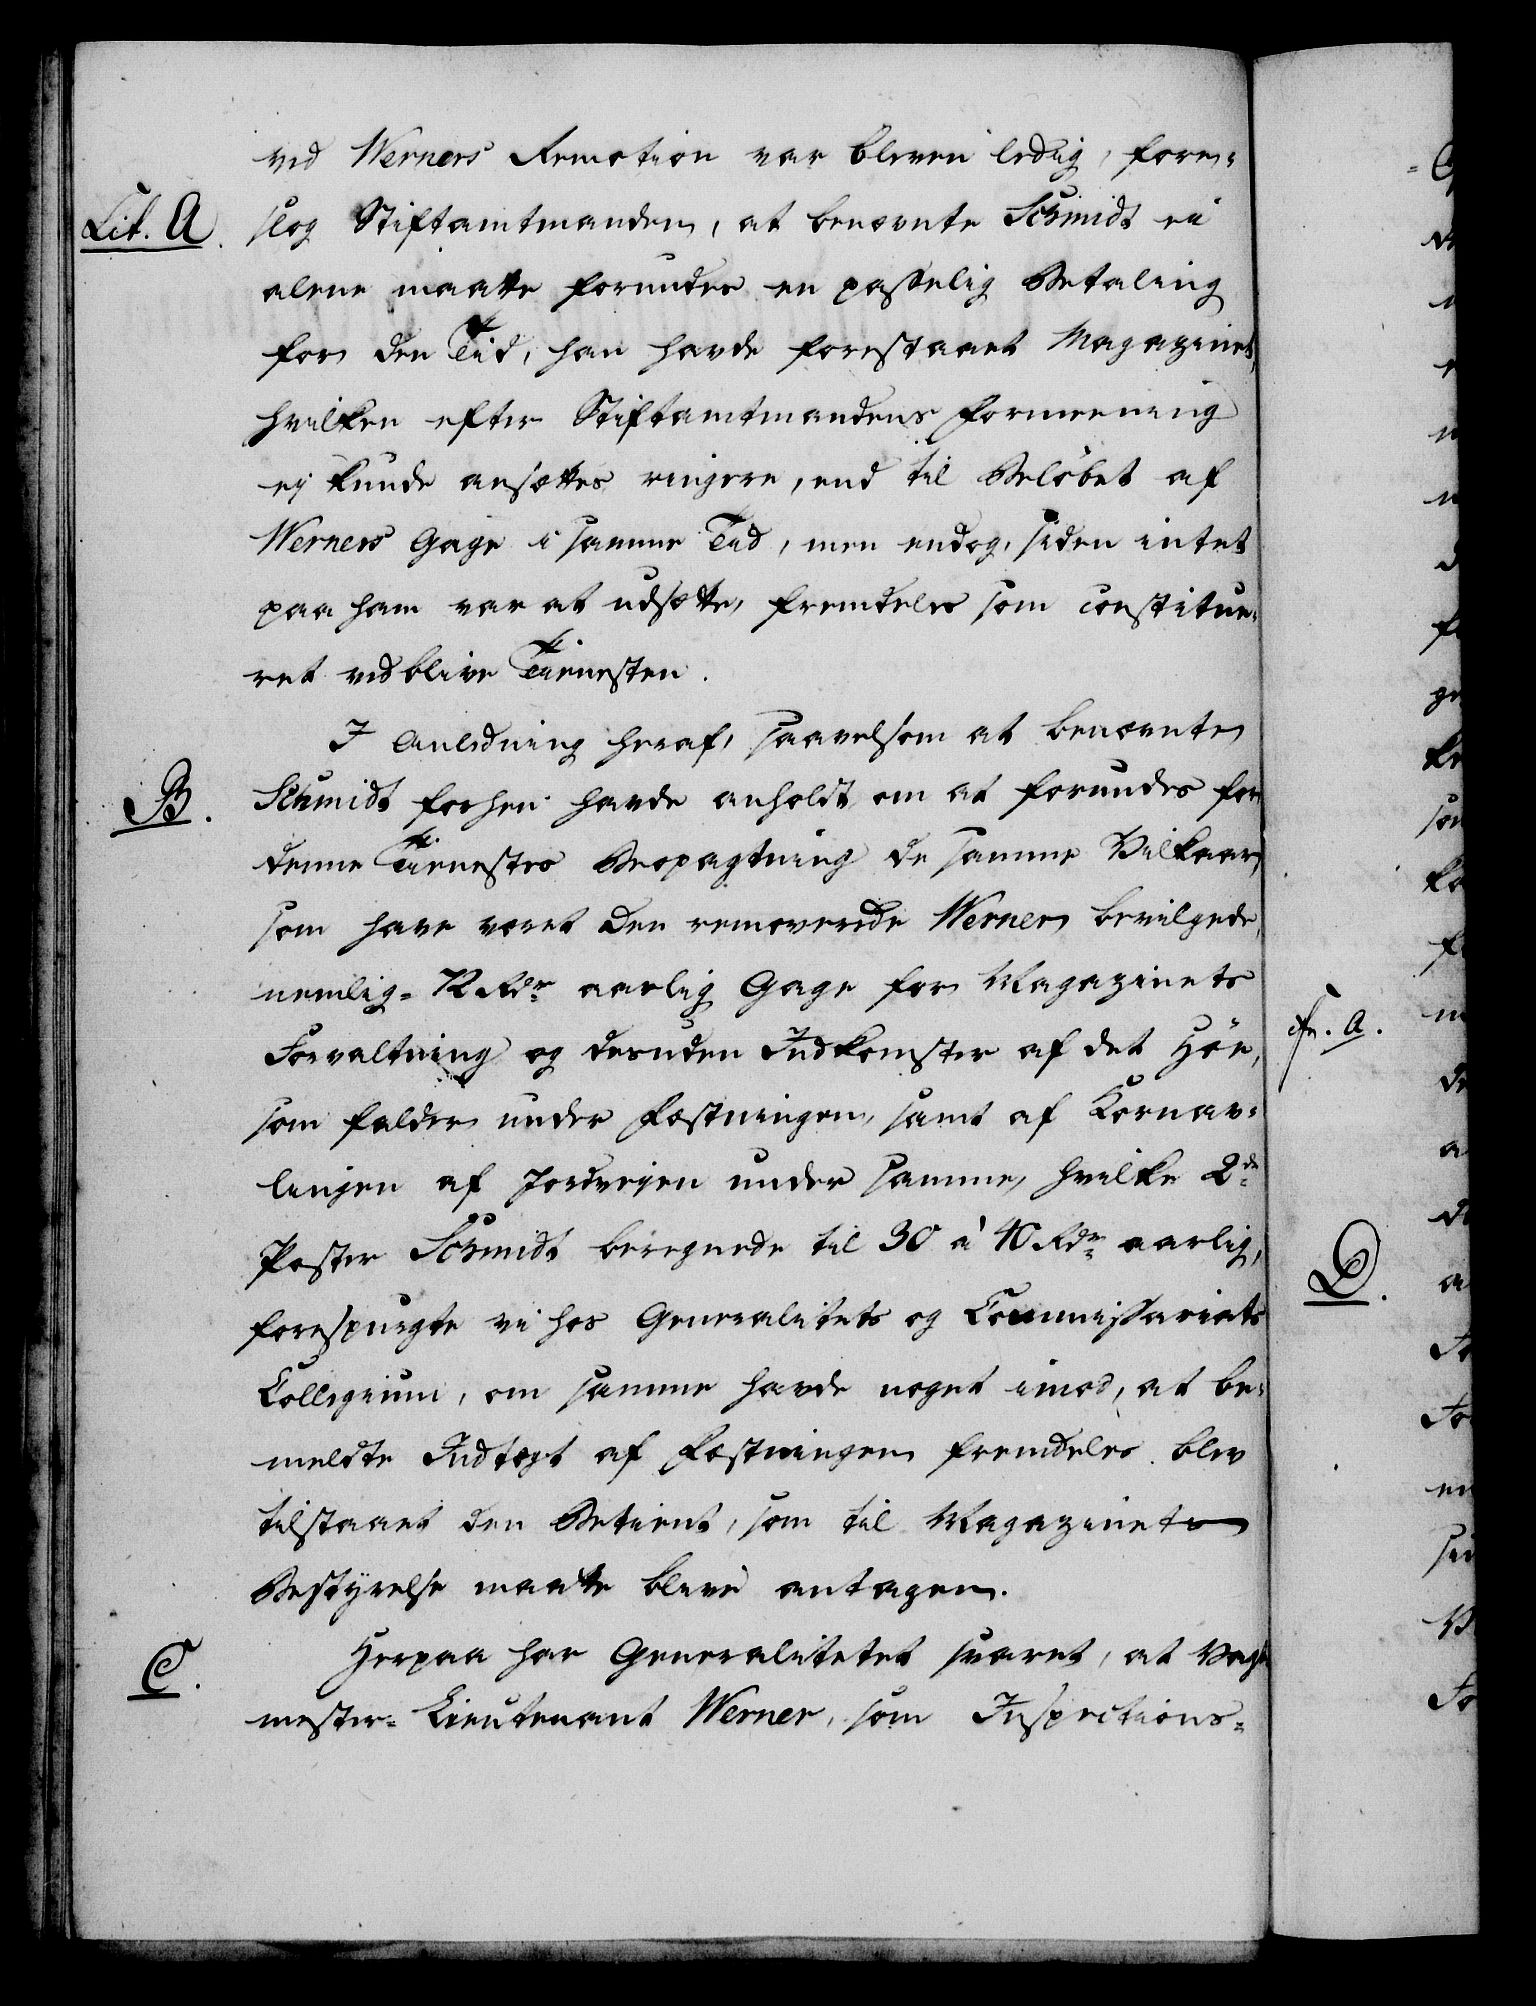 ved Werners Remotion var bleven ledig, fore-
Lit. A. slog Stiftamtmanden, at benævnte Schmidt ei
alene maatte forundes en passelig Betaling
for den Tid, han havde forestaaet Magazinet,
hvilken efter Stiftamtmandens Formeening
ej kunde ansættes ringere, end til Beløbet af
Werners Gage i samme Tid, men endog, siden intet
paa ham var at udsætte, fremdeles som constitue-
ret vedblive Tienesten.
I Anledning heraf, saavelsom at benævnte
B. Schmidt forhen havde anholdt om at forundes for
denne Tienestes Beopagtning de samme Vilkaar,
som have været den removerede Werner bevilgede,
nemlig 72 Rdr aarlig Gage for Magazinets
Forvaltning og desuden Indkomster af det Höe,
som falder under Fæstningen, samt af Kornav-
lingen af Jordvejen under samme, hvilke 2de
Poster Schmidt beregnede til 30 à 40 Rdr aarlig,
forespurgte vi hos Generalitets og Commissariats
Collegium, om samme havde noget imod, at be-
meldte Indtægt af Fæstningen fremdeles blev
tilstaaet den Betient, som til Magazinets
Bestyrelse maatte blive antagen.
C. Herpaa har Generalitetet svaret, at Vagt-
mester-Lieutenant Werner, som Inspections-
cfr. A.
D.